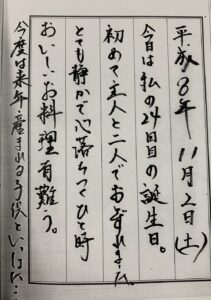 平成8年 11月2日(土)
今日は私の24回目の誕生日。
初めて主人と二人でおとずれました
とても静かで心落ちつくひと時
おいしいお料理有難う。
今度は来年産まれる子供といっしょに…